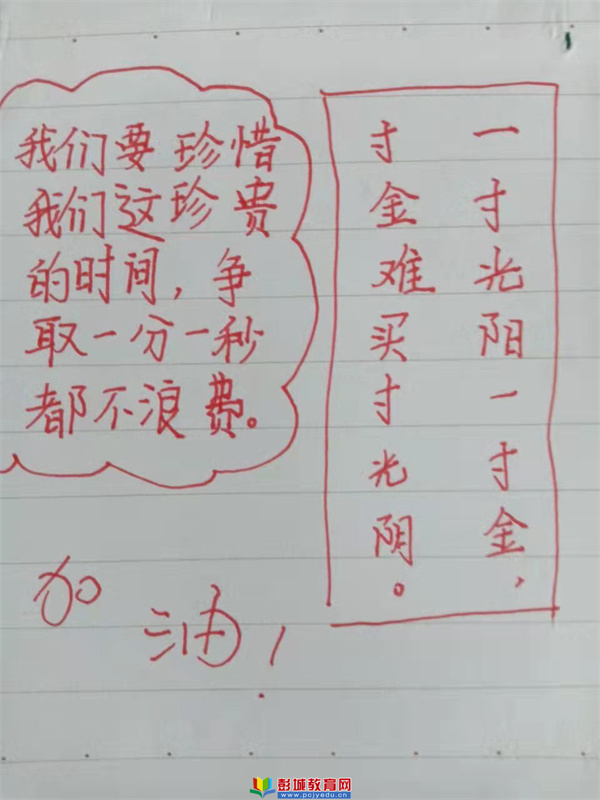 我们要珍惜
我们这珍贵
的时间，争
取一分一秒
都不浪费。
一寸光阳一寸金，
寸金难买寸光阴。
加
油！
彭城教育网
www.pcjyedu.cn